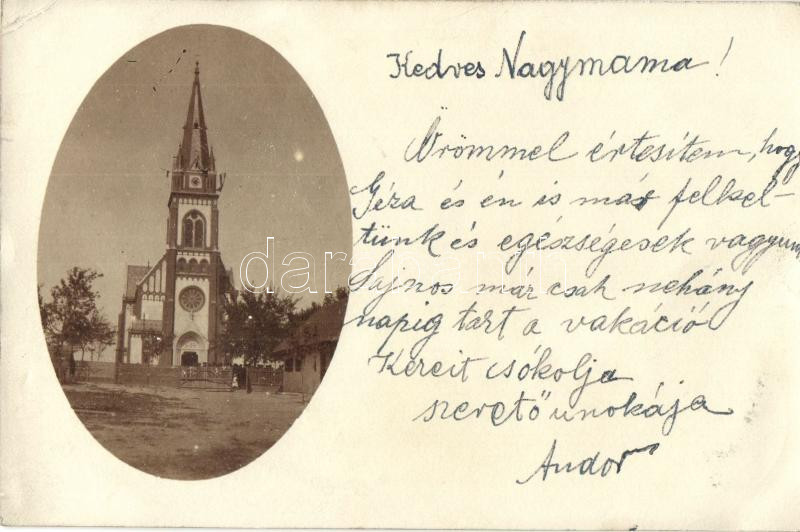 Kedves Nagymama!
Örömmel értesítem, hogy
Géza és én is már felkel-
tünk és egészségesek vagyunk
Sajnos már csak nehány
napig tart a vakáció
Kezeit csókolja
szerető unokája
Andor
darabanth.com